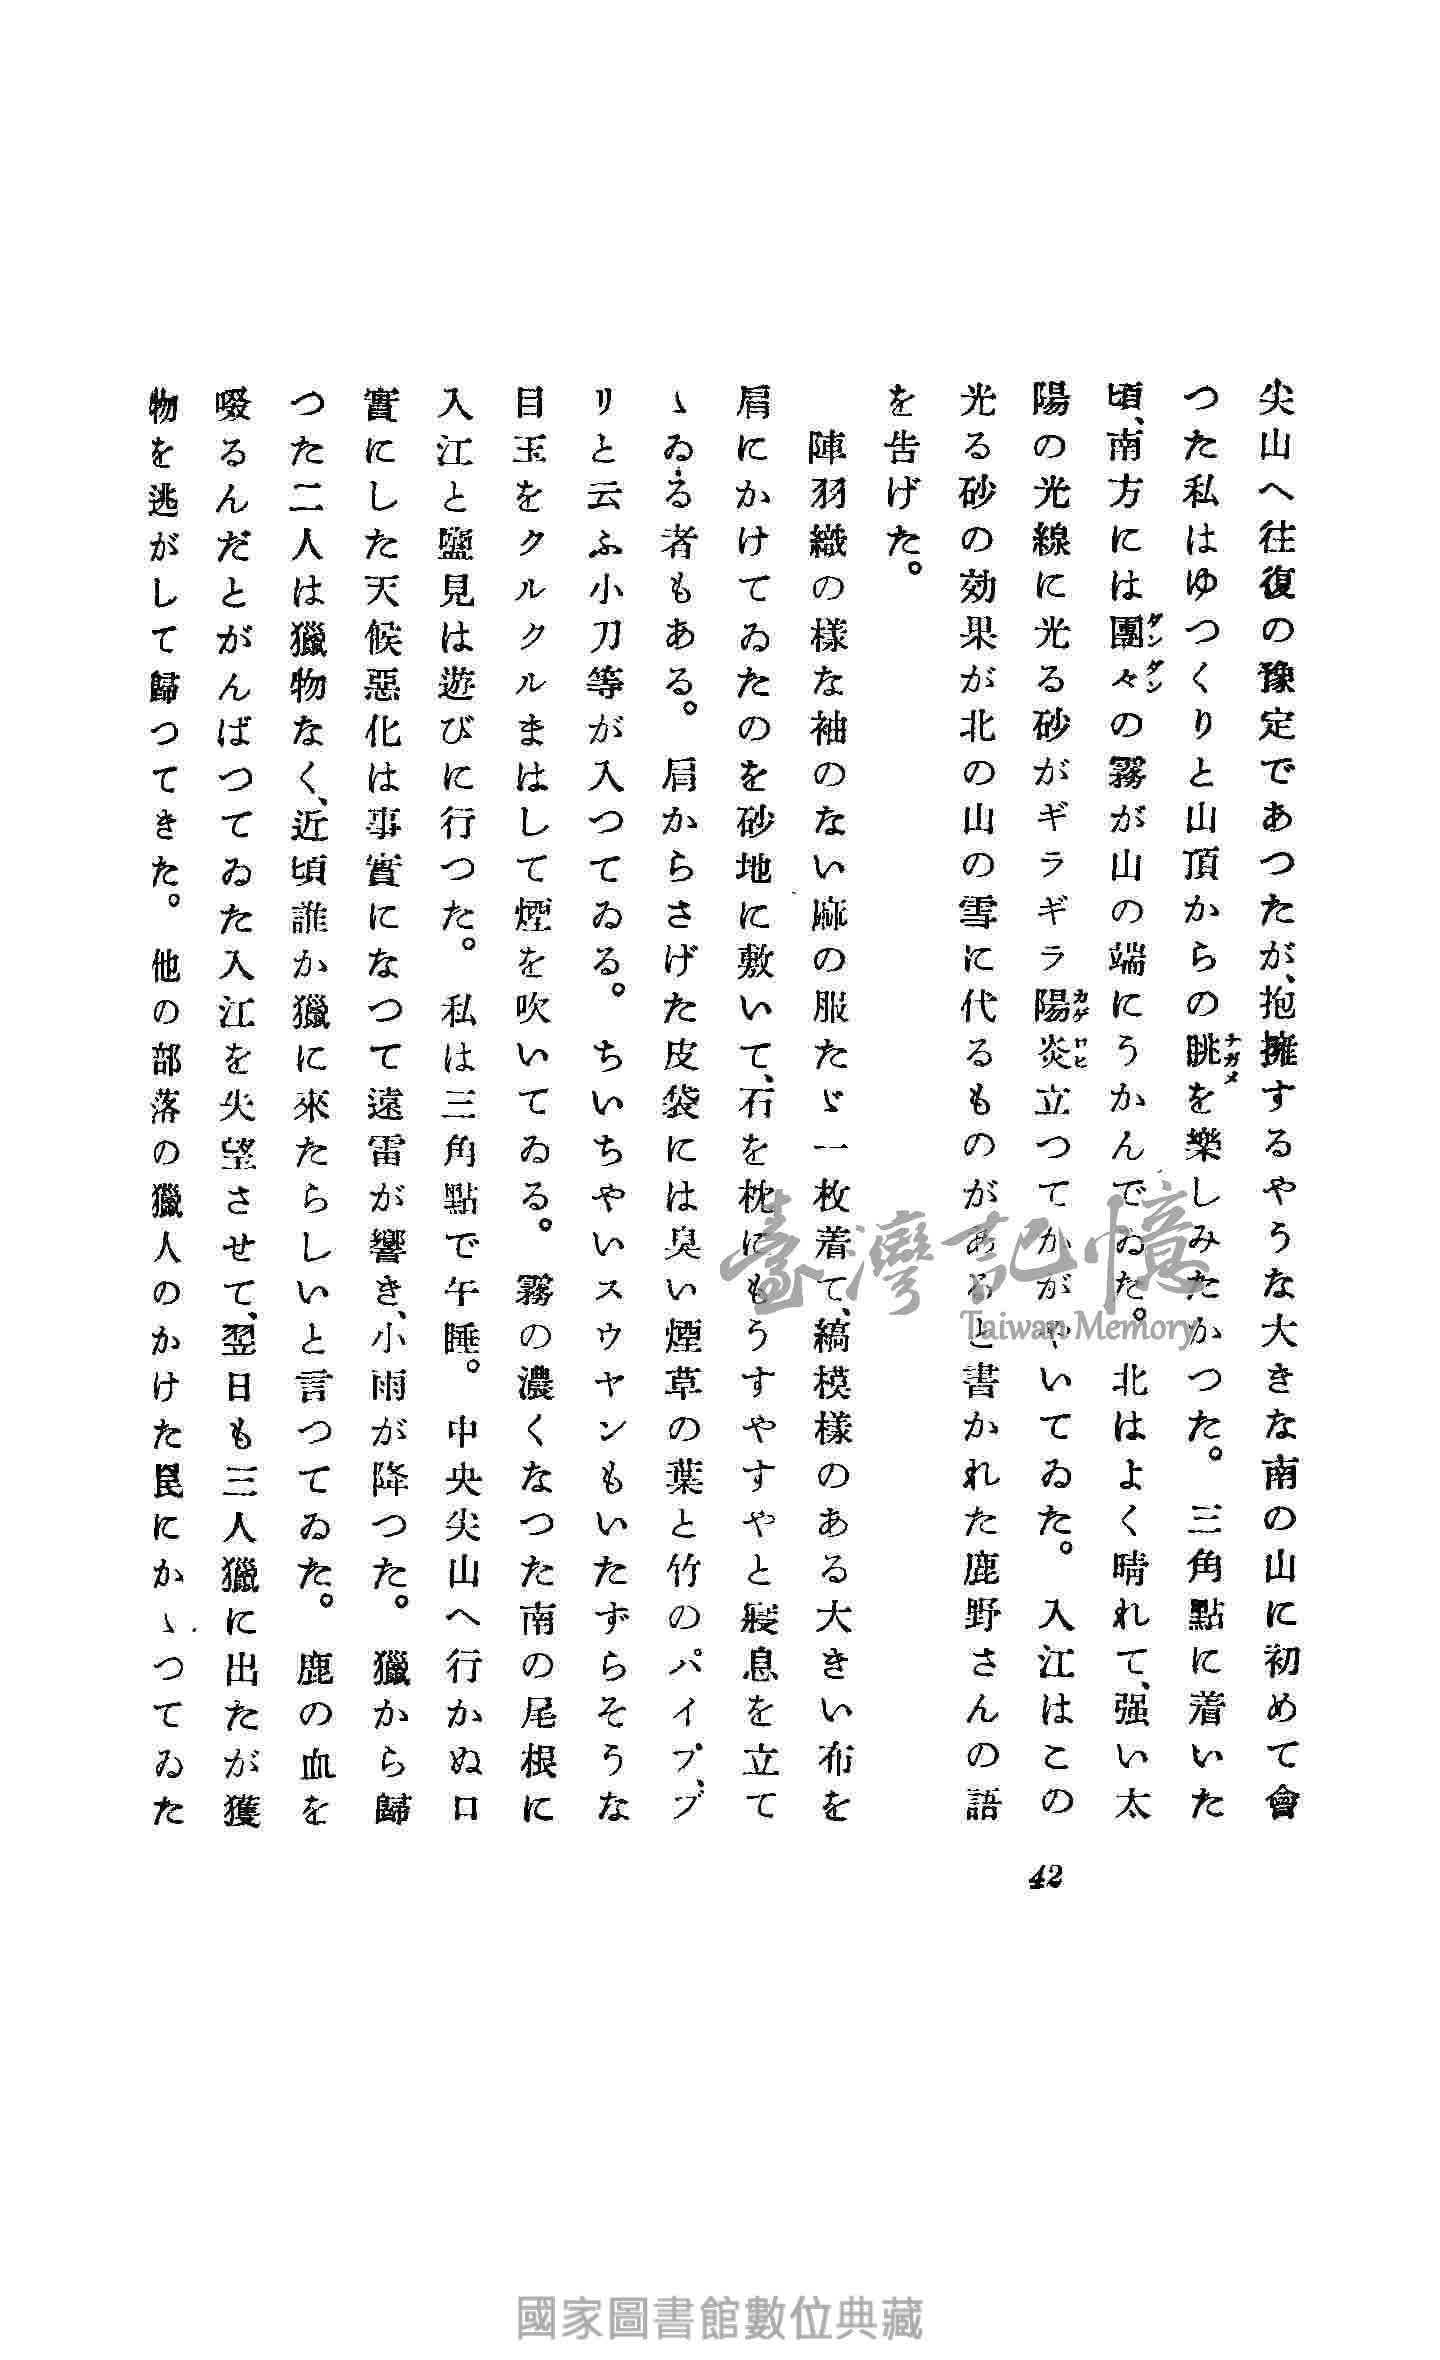 尖山へ往復の豫定であつたが、抱擁するやうな大きな南の山に初めて會
つた私はゆつくりと山頂からの眺を樂しみたかつた。三角點に着いた
ナガメ
頃、南方には團々の霧が山の端にうかんでゐた。北はよく晴れて、强い太
ダンダン
陽の光線に光る砂がギラギラ陽炎立つてかがやいてゐた。入江はこの
カゲロヒ
光る砂の効果が北の山の雪に代るものがあると書かれた鹿野さんの語
を告げた。
陣羽織の樣な袖のない麻の服たゞ一枚着て、縞模樣のある大きい布を
肩にかけてゐたのを砂地に敷いて、石を枕にもうすやすやと寢息を立て
ゝゐる者もある。肩からさげた皮袋には臭い煙草の葉と竹のパイプ、ブ
リと云ふ小刀等が入つてゐる。ちいちやいスウヤンもいたずらそうな
目玉をクルクルまはして煙を吹いてゐる。霧の濃くなつた南の尾根に
入江と鹽見は遊びに行つた。私は三角點で午睡。中央尖山へ行かぬ口
實にした天候惡化は事實になつて遠雷が響き、小雨が降つた。獵から歸
つた二人は獵物なく、近頃誰か獵に來たらしいと言つてゐた。鹿の血を
啜るんだとがんばつてゐた入江を失望させて、翌日も三人獵に出たが獲
物を逃がして歸つてきた。他の部落の獵人のかけた罠にかゝつてゐた
42
臺灣記憶
Taiwan Memory
國家圖書館數位典藏